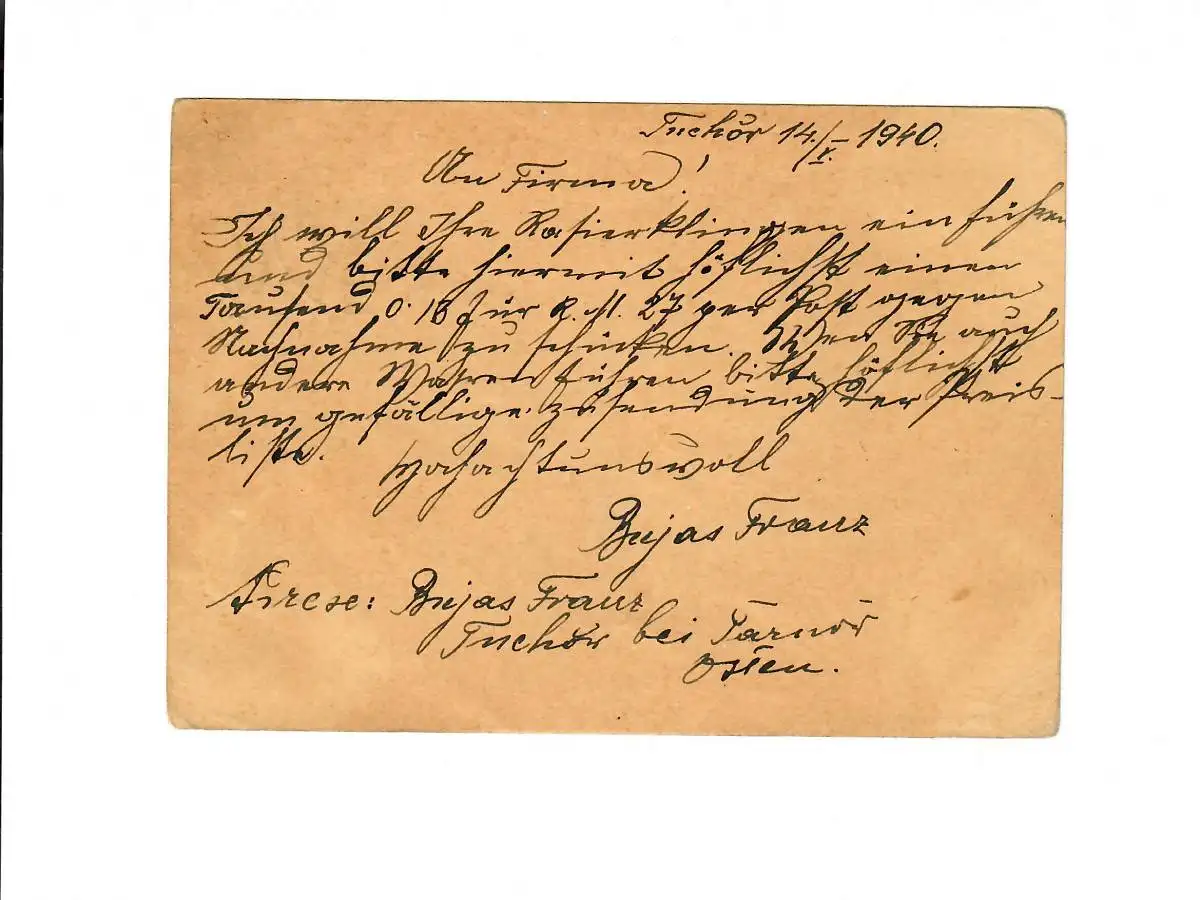 Tuchów 14./V. 1940.
An Firma!
Ich will Ihre Rasierklingen einführen
und bitte hiermit höflichst einen
Tausend 0.18 für R.M. 27 per Post gegen
Nachnahme zu schicken. Wen Sie auch
andere Waren führen bitte höflichst
um gefällige zusendung der Preis-
liste.
Hochachtunsvoll
Bujas Franz
Adrese: Bujas Franz
Tuchów bei Tarnów
Osten.